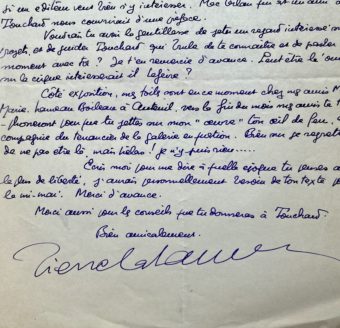 si un éditeur veut bien s'y intéresser.
Touchard nous écrirait d'une préface.
Voudrais-tu avoir la gentillesse de jeter un regard intéressé
projet, et de guider Touchard qui brûle de te connaître et de parler
moment avec toi? Je t'en remercie d'avance. Peut être l'
sur le cirque intéresserait il Lefèvre?
Côté exposition, mes toiles sont en ce moment chez mes amis M
Marie, hameau Boileau à Auteuil. vers la fin du mois mes amis te t
-phoneront pour que tu jettes sur mon "œuvre" ton œil de feu,
compagnie du tenancier de la galerie en question. Bien sûr je regrette
de ne pas être là mais hélas! je n'y puis rien.....
Ecris moi pour me dire à quelle époque tu penses a
le plus de liberté, j'aurais personnellement besoin de ton texte p
la mi-mai. Merci d'avance.
Merci aussi pour le conseils que tu donneras à Touchard.
Bien amicalement.